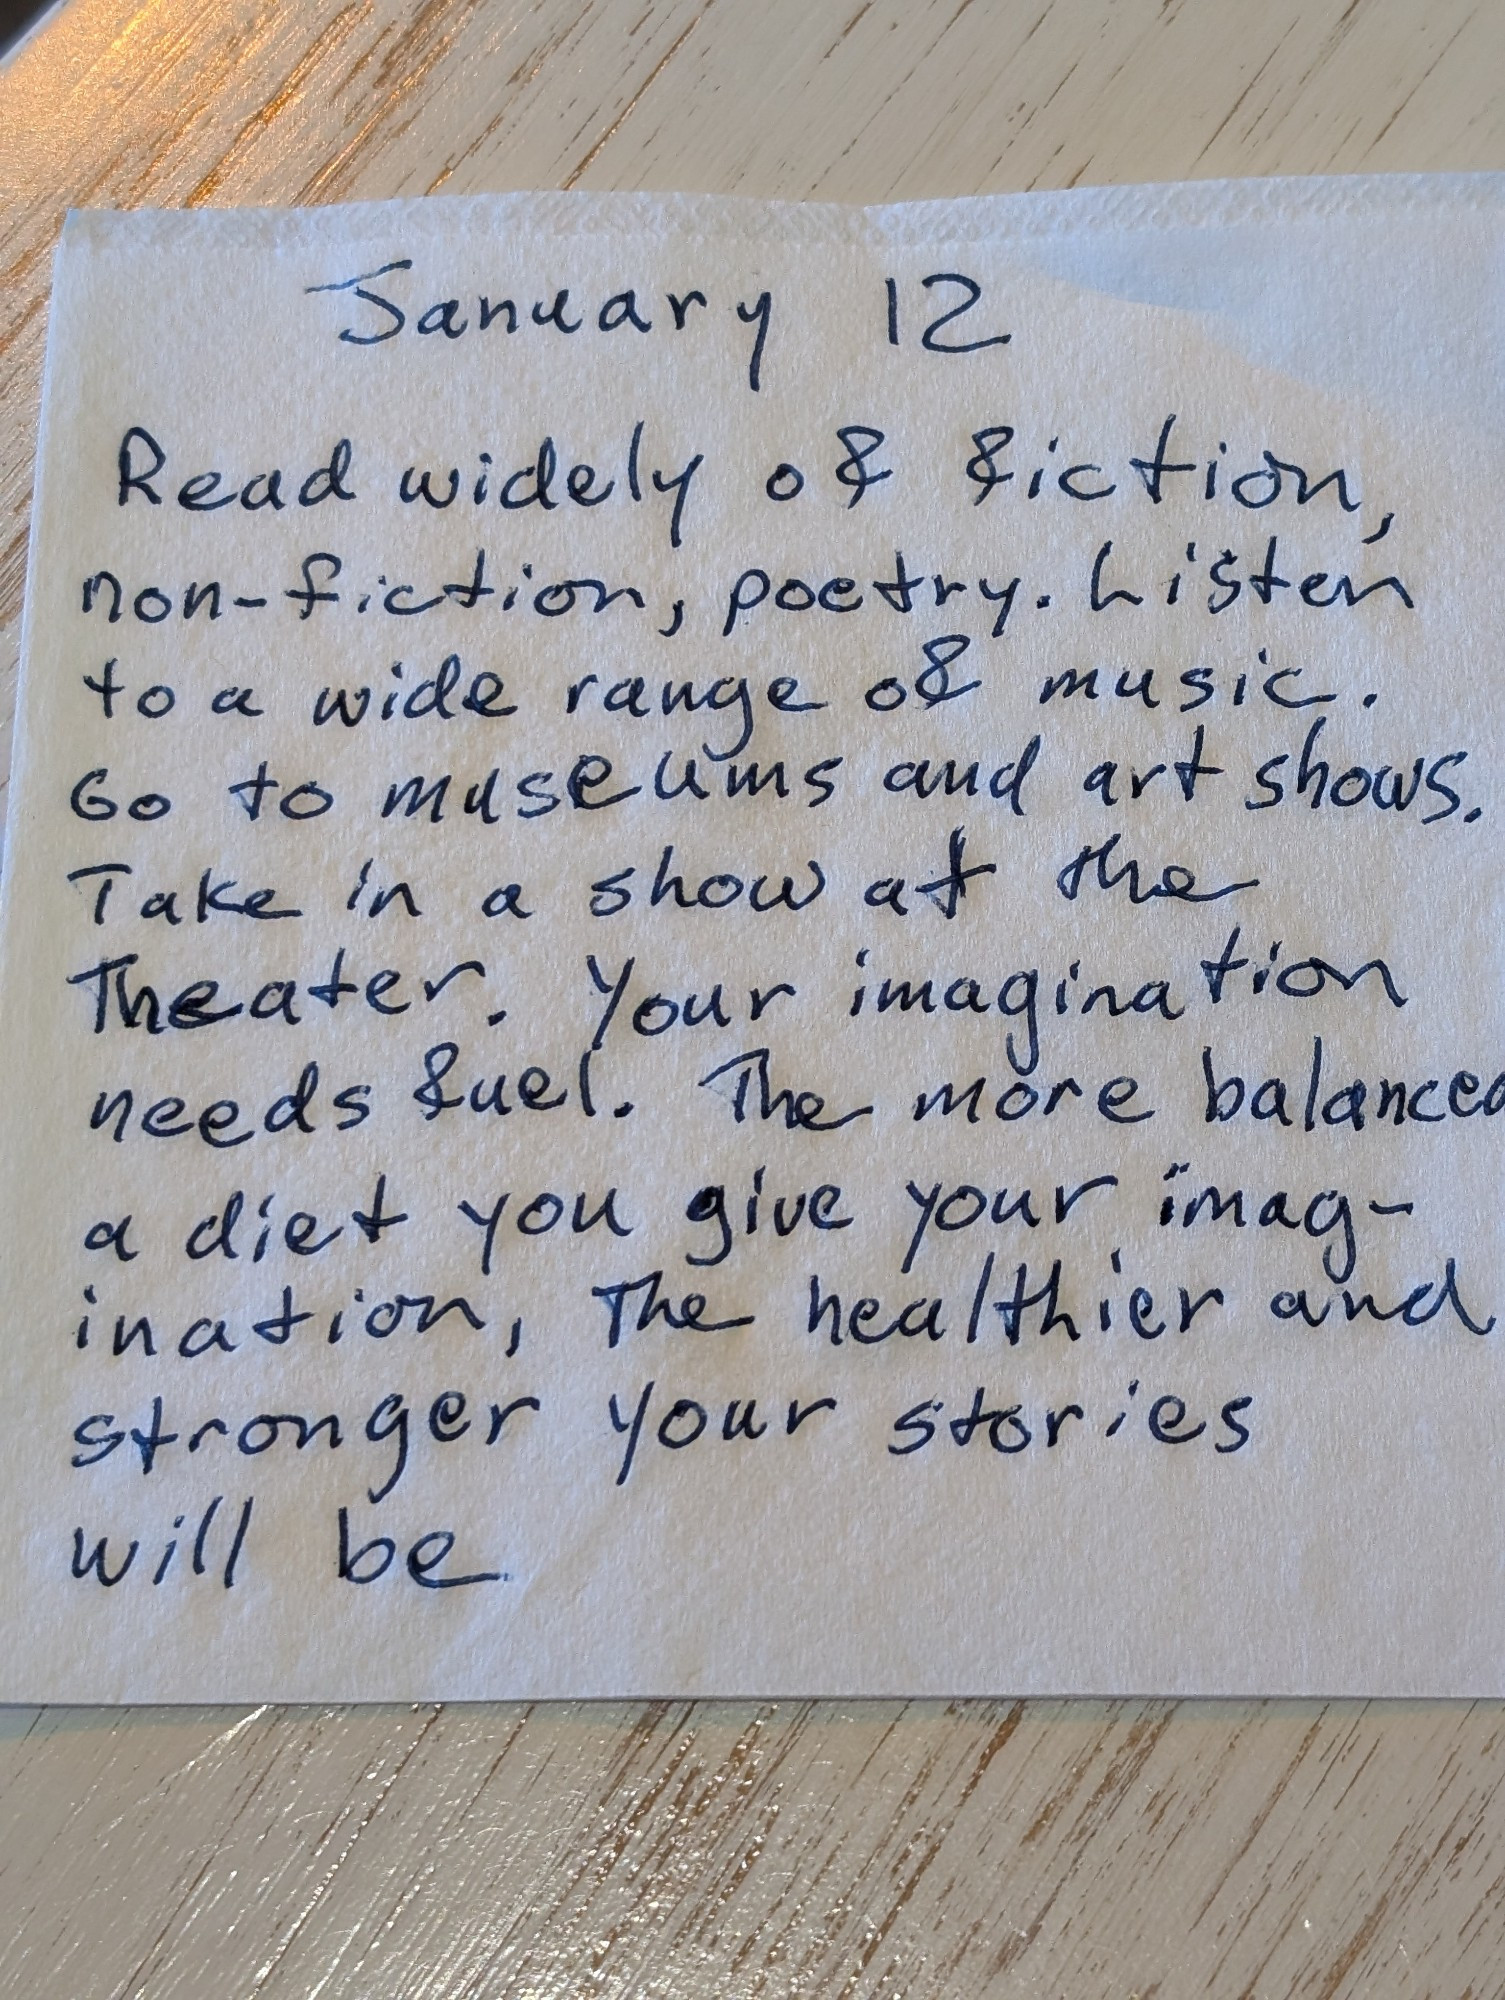 January 12
Read widely of fiction,
non-fiction, poetry. Listen
to a wide range of music.
Go to museums and art shows.
Take in a show at the
Theater. Your imagination
needs fuel. The more balanced
a diet you give your imag-
ination, The healthier and
stronger your stories
will be